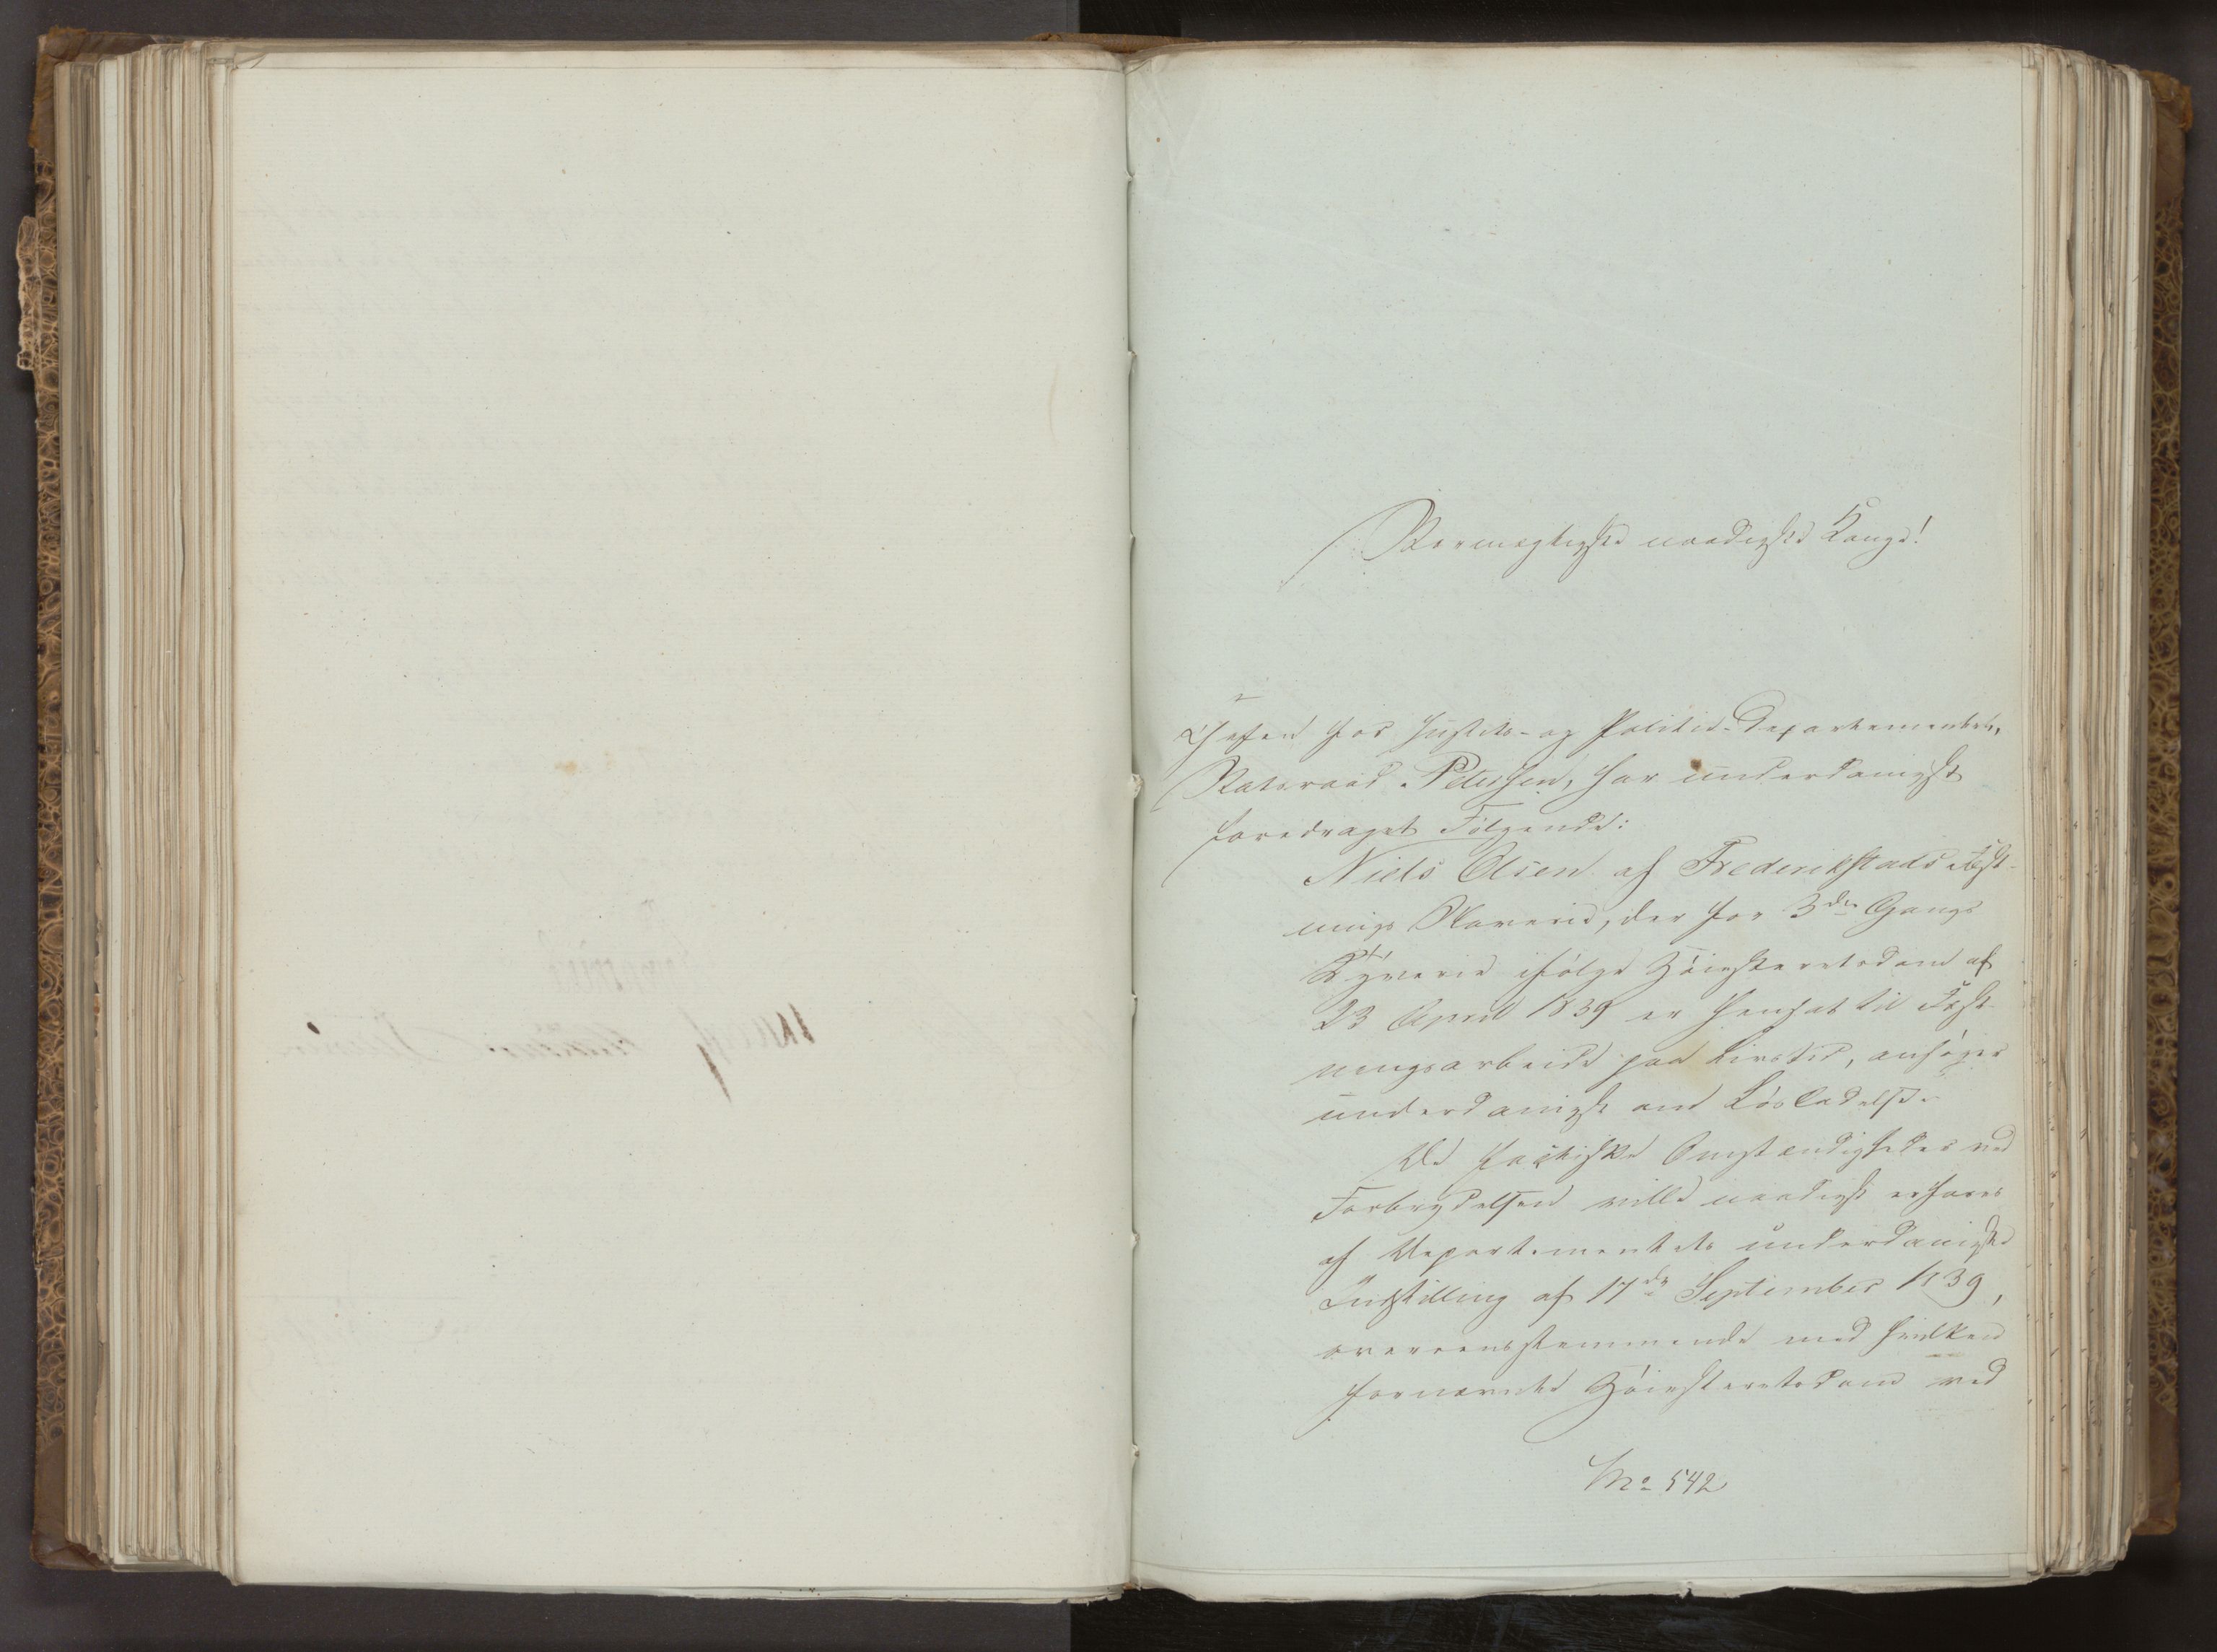 Stormægtigste naadigste Konge!
Chefen for Justits- og Politie-Departementet,
Statsraad Petersen, har underdanigst
foredraget Følgende:
Niels Olsen af Frederikstads Fæst-
nings Slaverie, der for 3die Gangs
Tyverie ifølge Høiesteretsdom af
23 April 1839 er hensat til Fæst-
ningsarbeide paa Livstid, ansøger
underdanigst om Løsladelse.
De factiske Omstændigheder ved
Forbrydelsen ville naadigst erfares
af Departementets underdanigste
Indstilling af 17de September 1839,
overeensstemmende med hvilken
fornævnte Høiesteretsdom ved
No 542